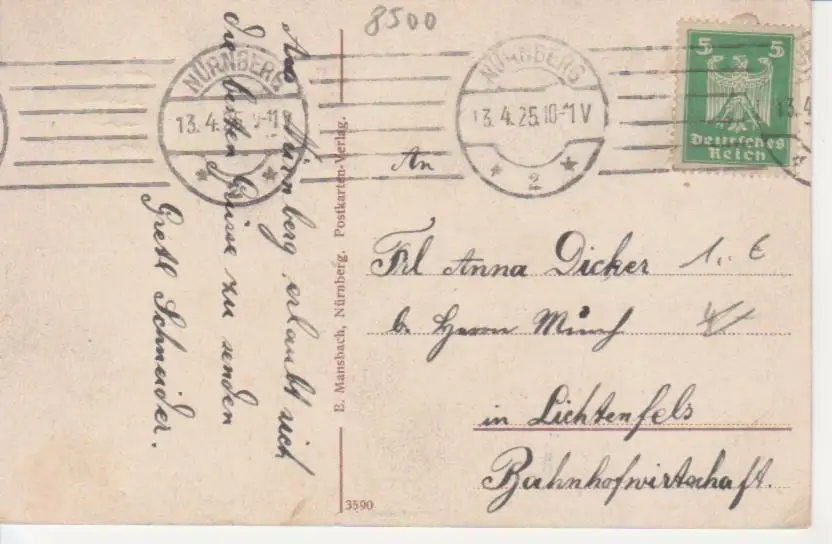 8500
NÜRNBERG
13.4.25.9-11V
NÜRNBERG
13.4.25.10-11V
2
5 5
Deutsches
Reich
13.4
Aus Nürnberg erlaubt sich
die besten Grüsse zu senden
Gretl Schneider.
B. Mansbach, Nürnberg. Postkarten-Verlag.
3590
An
Frl Anna Dicker 1,. €
b. Herrn Münch
in Lichtenfels
Bahnhofwirtschaft.